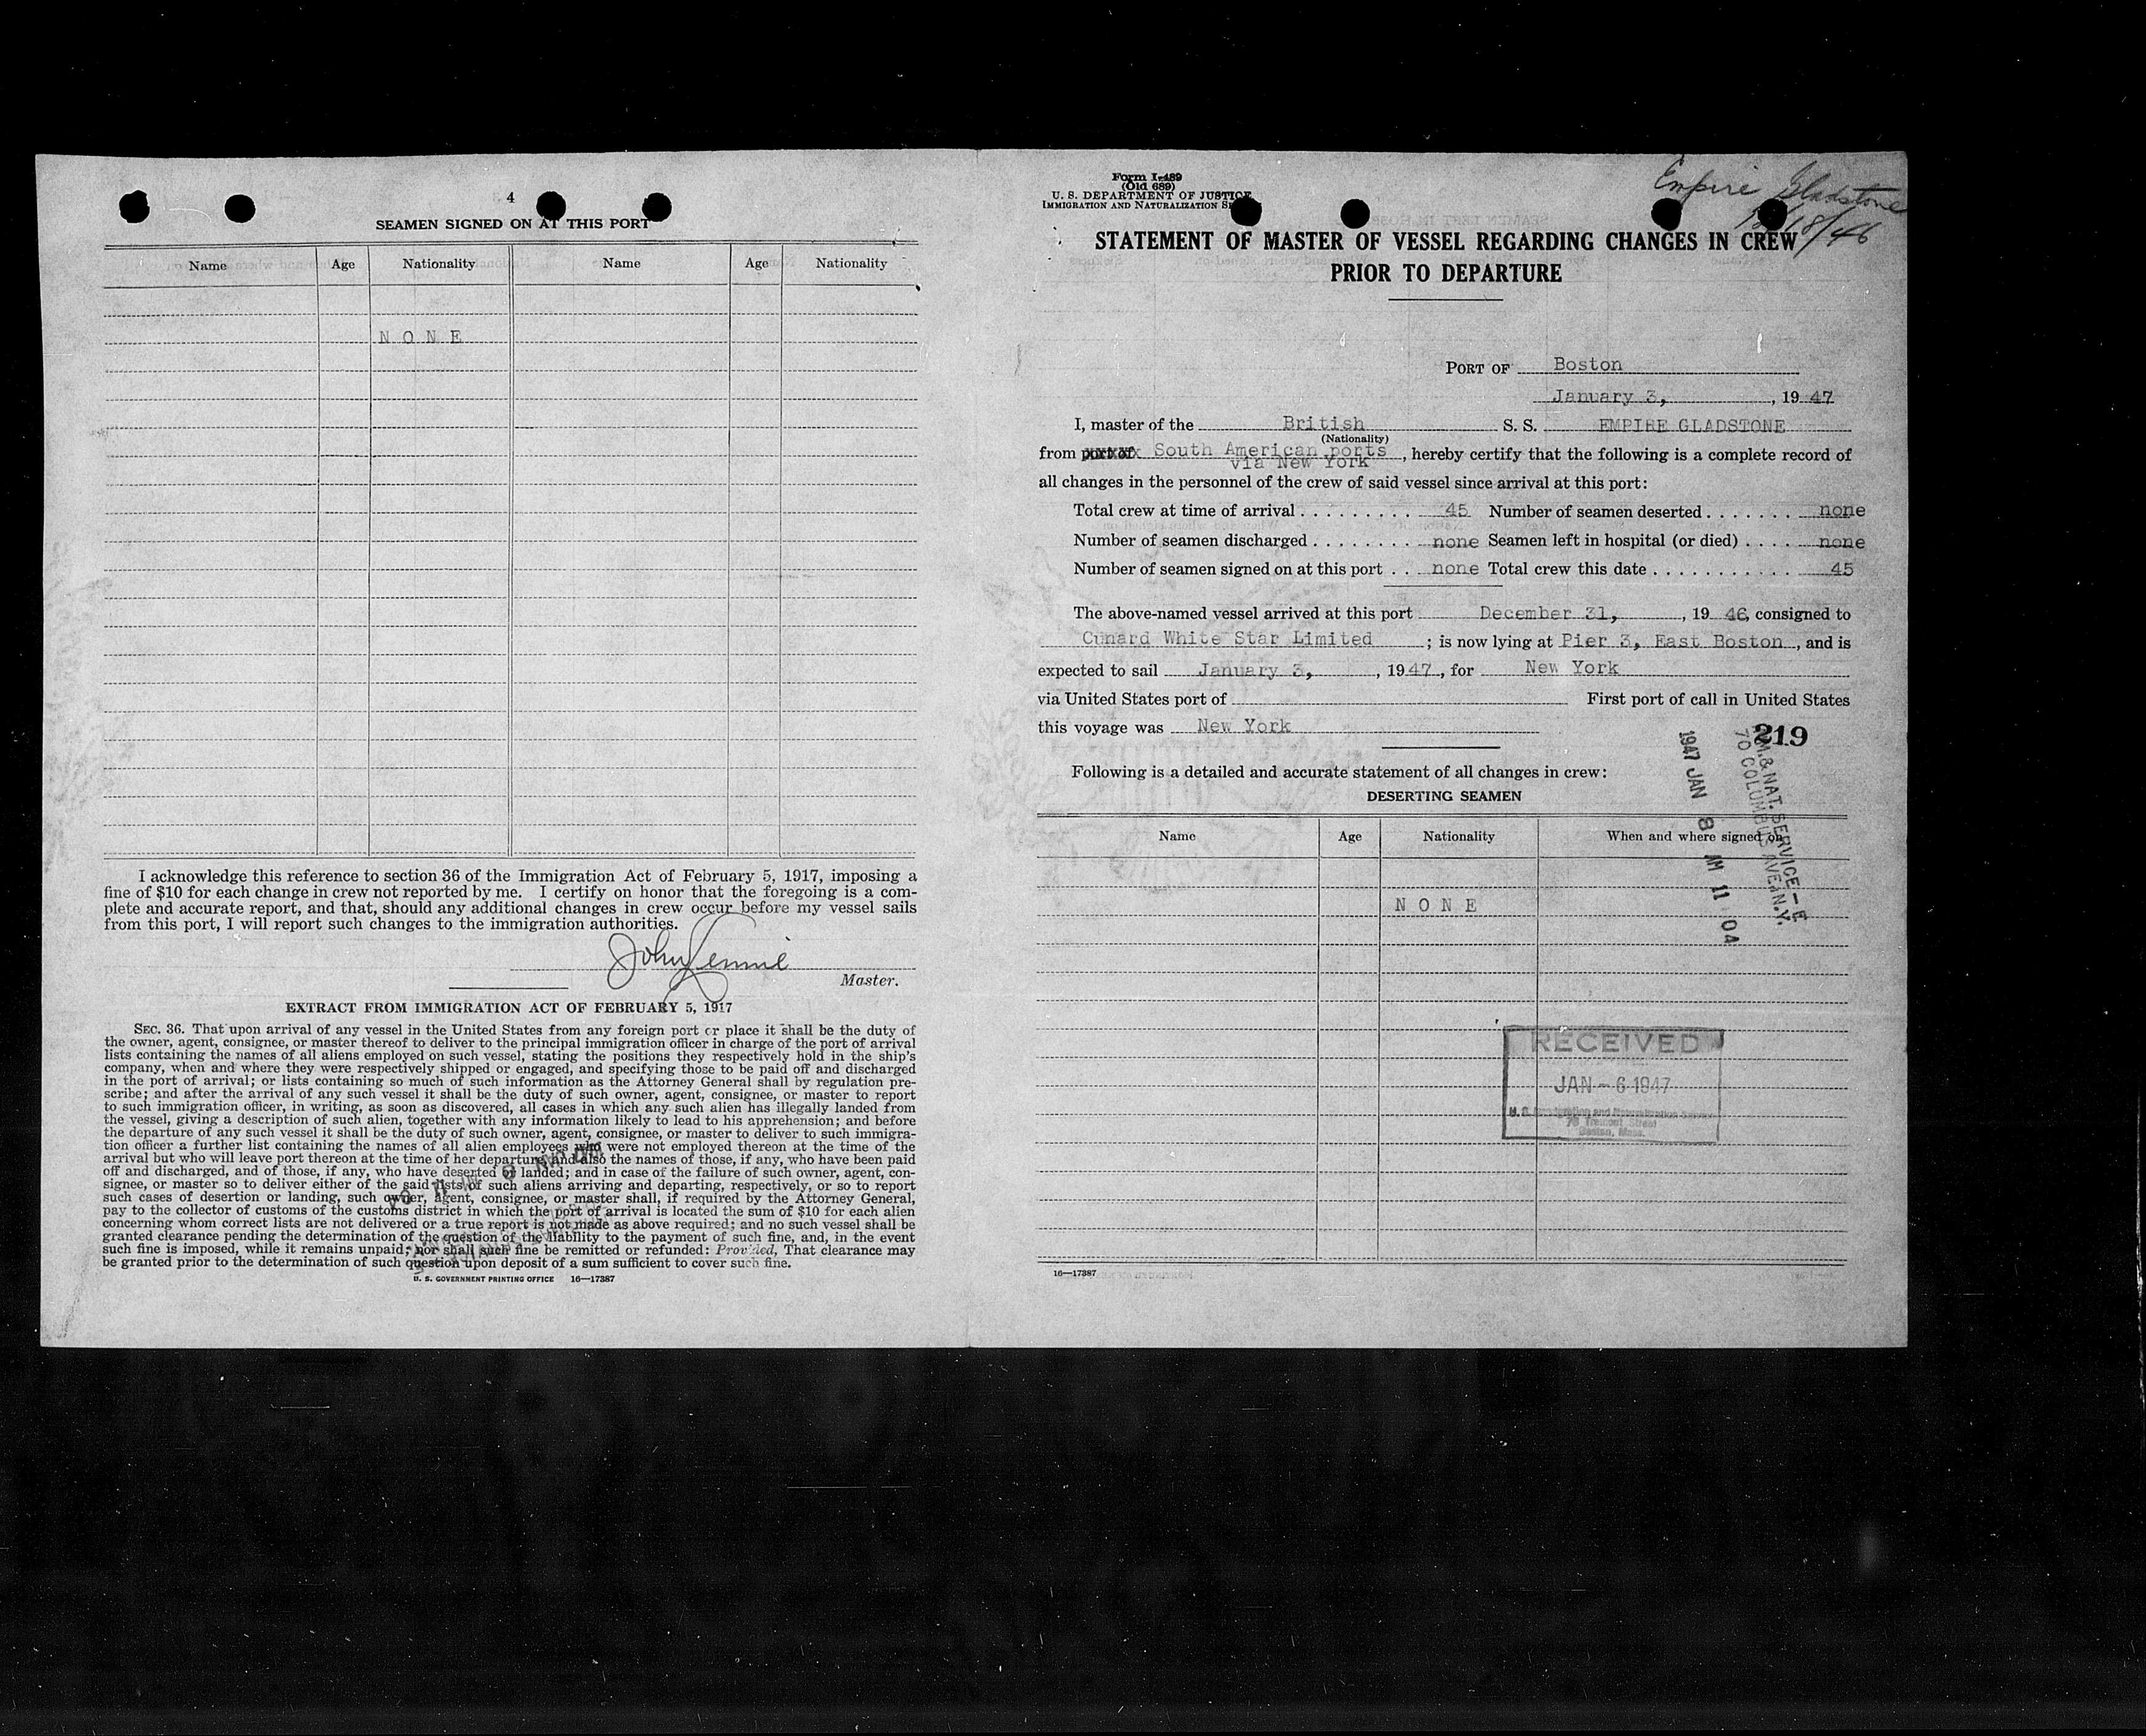 4
SEAMEN SIGNED ON AT THIS PORT
Name Age Nationality Name Age Nationality
N O N E
I acknowledge this reference to section 36 of the Immigration Act of February 5, 1917, imposing a
fine of $10 for each change in crew not reported by me. I certify on honor that the foregoing is a com-
plete and accurate report, and that, should any additional changes in crew occur before my vessel sails
from this port, I will report such changes to the immigration authorities.
John Rennie
Master.
EXTRACT FROM IMMIGRATION ACT OF FEBRUARY 5, 1917
SEC. 36. That upon arrival of any vessel in the United States from any foreign port or place it shall be the duty of
the owner, agent, consignee, or master thereof to deliver to the principal immigration officer in charge of the port of arrival
lists containing the names of all aliens employed on such vessel, stating the positions they respectively hold in the ship's
company, when and where they were respectively shipped or engaged, and specifying those to be paid off and discharged
in the port of arrival; or lists containing so much of such information as the Attorney General shall by regulation pre-
scribe; and after the arrival of any such vessel it shall be the duty of such owner, agent, consignee, or master to report
to such immigration officer, in writing, as soon as discovered, all cases in which any such alien has illegally landed from
the vessel, giving a description of such alien, together with any information likely to lead to his apprehension; and before
the departure of any such vessel it shall be the duty of such owner, agent, consignee, or master to deliver to such immigra-
tion officer a further list containing the names of all alien employees who were not employed thereon at the time of the
arrival but who will leave port thereon at the time of her departure, and also the names of those, if any, who have been paid
off and discharged, and of those, if any, who have deserted or landed; and in case of the failure of such owner, agent, con-
signee, or master so to deliver either of the said lists of such aliens arriving and departing, respectively, or so to report
such cases of desertion or landing, such owner, agent, consignee, or master shall, if required by the Attorney General,
pay to the collector of customs of the customs district in which the port of arrival is located the sum of $10 for each alien
concerning whom correct lists are not delivered or a true report is not made as above required; and no such vessel shall be
granted clearance pending the determination of the question of the liability to the payment of such fine, and, in the event
such fine is imposed, while it remains unpaid; nor shall such fine be remitted or refunded: Provided, That clearance may
be granted prior to the determination of such question upon deposit of a sum sufficient to cover such fine.
U. S. GOVERNMENT PRINTING OFFICE 16—17387
Form I-489
(Old 689)
U. S. DEPARTMENT OF JUSTICE
IMMIGRATION AND NATURALIZATION
Empire Gladstone
12/18/46
STATEMENT OF MASTER OF VESSEL REGARDING CHANGES IN CREW
PRIOR TO DEPARTURE
PORT OF Boston
January 3, , 19 47
I, master of the British S. S. EMPIRE GLADSTONE
(Nationality)
from port of South American ports , hereby certify that the following is a complete record of
via New York
all changes in the personnel of the crew of said vessel since arrival at this port:
Total crew at time of arrival . . . . . . . . . 45 Number of seamen deserted . . . . . . . none
Number of seamen discharged . . . . . . . . none Seamen left in hospital (or died) . . . . none
Number of seamen signed on at this port . . none Total crew this date . . . . . . . . . . . . 45
The above-named vessel arrived at this port December 31, , 19 46, consigned to
Cunard White Star Limited ; is now lying at Pier 3, East Boston , and is
expected to sail January 3, , 19 47 , for New York
via United States port of First port of call in United States
this voyage was New York
219
Following is a detailed and accurate statement of all changes in crew:
DESERTING SEAMEN
Name Age Nationality When and where signed on
N O N E
1947 JAN 8 AM 11 04
IM. & NAT. SERVICE — E
70 COLUMBUS AVE. N.Y.
RECEIVED
JAN - 6 1947
U. S. Immigration and Naturalization Service
70 Tremont Street
Boston, Mass.
16—17387